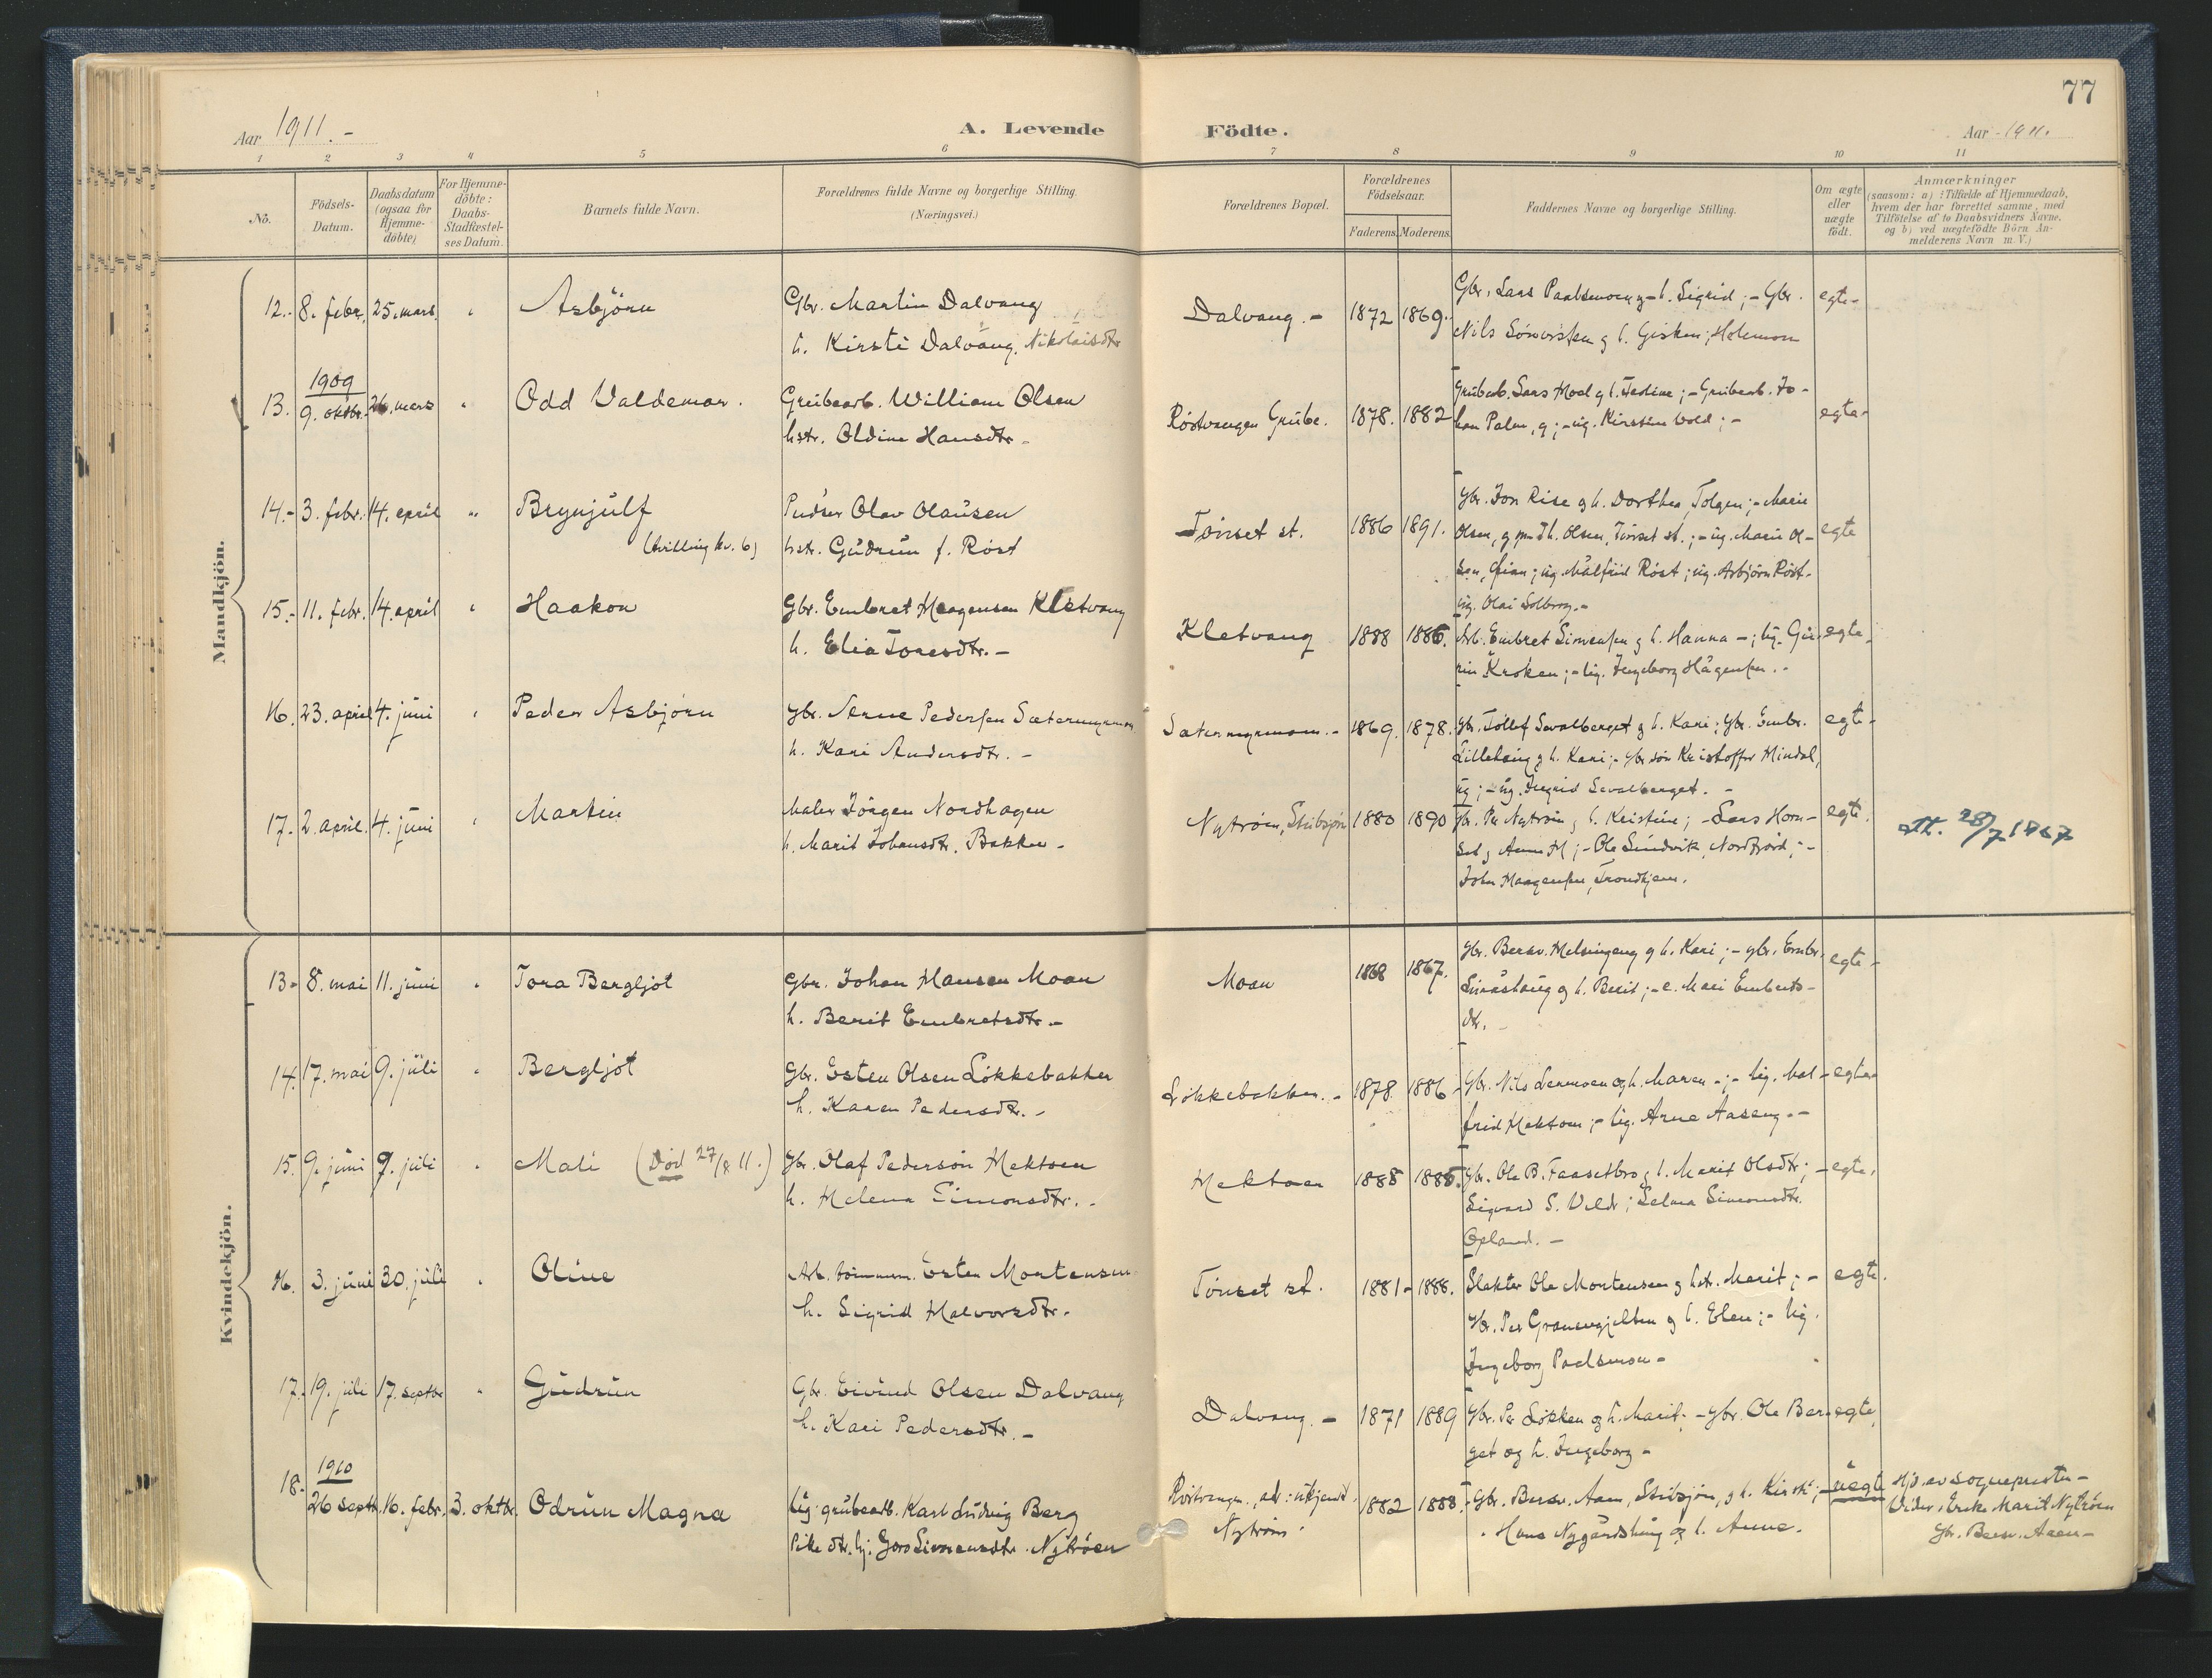 77
Aar 1911. -
A. Levende Födte.
Aar - 1911.
1 2 3 4 5 6 7 8 9 10 11
No.
Födsels-
Datum.
Daabsdatum
(ogsaa for
Hjemme-
döbte)
For Hjemme-
döbte:
Daabs-
Stadfæstel-
ses Datum.
Barnets fulde Navn.
Forældrenes fulde Navne og borgerlige Stilling.
(Næringsvei.)
Forældrenes Bopæl.
Forældrenes
Födselsaar.
Faderens. Moderens.
Faddernes Navne og borgerlige Stilling.
Om ægte
eller
uægte
födt.
Anmærkninger
(saasom: a) i Tilfælde af Hjemmedaab,
hvem der har forrettet samme, med
Tilföielse af to Daabsvidners Navne.
og b) ved uægtefödte Börn An-
melderens Navn m. V.)
Mandkjön.
12. - 8. febr. 25. mars. " Asbjörn
Gbr. Martin Dalvang
h. Kirsti Dalvang, Nikolaisdtr
Dalvang. - 1872 1869.
Gbr. Lars Paalsmoen g - h. Sigrid ; - Gbr.
Nils g h. Gisken ;
egte -
13. 1909
9. oktbr. 26. mars " Odd Valdemar.
Grubearb. William Olsen
hstr. Oldine Hansdtr -
Röstvangen Grube. 1878. 1882
Grubearb. Lars Moel g h. ; - Grubearb. Jo-
han Palm, g ; - ug. Kirsten Vold ; -
egte -
14. - 3. febr. 14. april " Brynjulf
(tvilling kv. 6)
Pudser Olav Olausen
hstr. Gudrun f. Röst
Tönset st. 1886 1891.
Gbr. Jon Rise g h. Dorthea, Tolgen ; - Marie
Olsen, g Th. Olsen, Tönset st. ; - ug. Marie Ol-
sen, ; ug. Målfrid Röst ; ug. Asbjörn Röst -
ug. Olai Solberg. -
egte
15. - 11. febr. 14. april " Haakon
Gbr. Embret Haagensen Kletvang
h. Elia Toresdtr. -
Kletvang 1888 1886.
Arb. Embret Simensen g h. Hanna - ; Ug. Gu-
nn Kroken ; - Ug. Ingeborg Hågensen. -
egte.
16. 23. april 4. juni " Peder Asbjörn
Gbr. Arne Pedersen Sætermyrmoen
h. Kari Andersdtr. -
Sætermyrmoen. - 1869. 1878.
Gbr. Tollef Savalberget g h. Kari ; Gbr. Embr.
Lillehaug g h. Kari ; - Gbr. sön Kristoffer Mindal,
ug ; - ug. Ingrid Savalberget. -
egte -
17. 2. april. 4. juni " Martin
Maler Jörgen Nordhagen
h. Marit Johansdtr. Bakken -
Nytröen, Stubsjön 1880 1890
Gbr. Per Nytröen g h. Kristine ; - Lars Horn-
set g Anne M ; - Ole Sundvik, Nordfjord ; -
John Haagensen, Trondhjem.
egte.
att. 28/7 1967
Kvindekjön.
13 - 8. mai 11. juni " Tora Bergljot
Gbr. Johan Hansen Moan
h. Berit Embretsdtr. -
Moan 1868 1867.
Gbr. Bersv. Melsingeng g h. Kari ; - gbr. Embr.
g h. Berit ; - e. Mari Embrets-
dtr. -
egte -
14. 17. mai 9. juli " Bergljot
Gbr. Esten Olsen Lökkebakken
h. Karen Pedersdtr. -
Lökkebakken. - 1878. 1886 -
Gbr. Nils Lermoen og h. Maren - ; - Ug. Mal-
frid Mektoen ; - Ug. Arne Aaseng. -
egte -
15. 9. juni 9. juli " Mali (Död 27/8 11.)
Gbr. Olaf Pedersön Mektoen
h. Helena Simonsdtr. -
Mektoen 1888 1886.
Gbr. Ole B. Faasetbro g h. Marit Olsdtr ; -
Sigvard S. ; Selma Simonsdtr.
Opland. -
egte.
16. 3. juni 30. juli " Oline
Arb. tömmerm. Esten Mortensen
h. Sigrid Halvorsdtr. -
Tönset st. 1881 - 1888.
Slakter Ole Mortensen g hstr. Marit ; -
Gbr. Per g h. Elen ; - Ug.
Ingeborg Paalsmoen -
egte.
17. 19. juli 17. septbr " Gudrun
Gbr. Eivind Olsen Dalvang
h. Kari Pedersdtr. -
Dalvang. - 1871 1889
Gbr. Per Lökken og h. Marit. - Gbr. Ole Ber-
get og h. Ingeborg -
egte,
18. 1910
26 septbr. 16. febr. 3. oktbr. Odrun Magna
Ug. grubearb. Karl Ludvig Berg
Pike Goro Simensdtr. Nytröen
Röstvangen, ad: ukjend.
Nytröen. 1882 1888.
Gbr. Bersv. Aaen, Stubsjön, g h. Kirsti ; -
Hans Nygårdshaug og h. Anne.
uegte
Hjd. av sognepresten -
Vidner: Enke Marit Nytröen
Gbr. Bersv. Aaen -